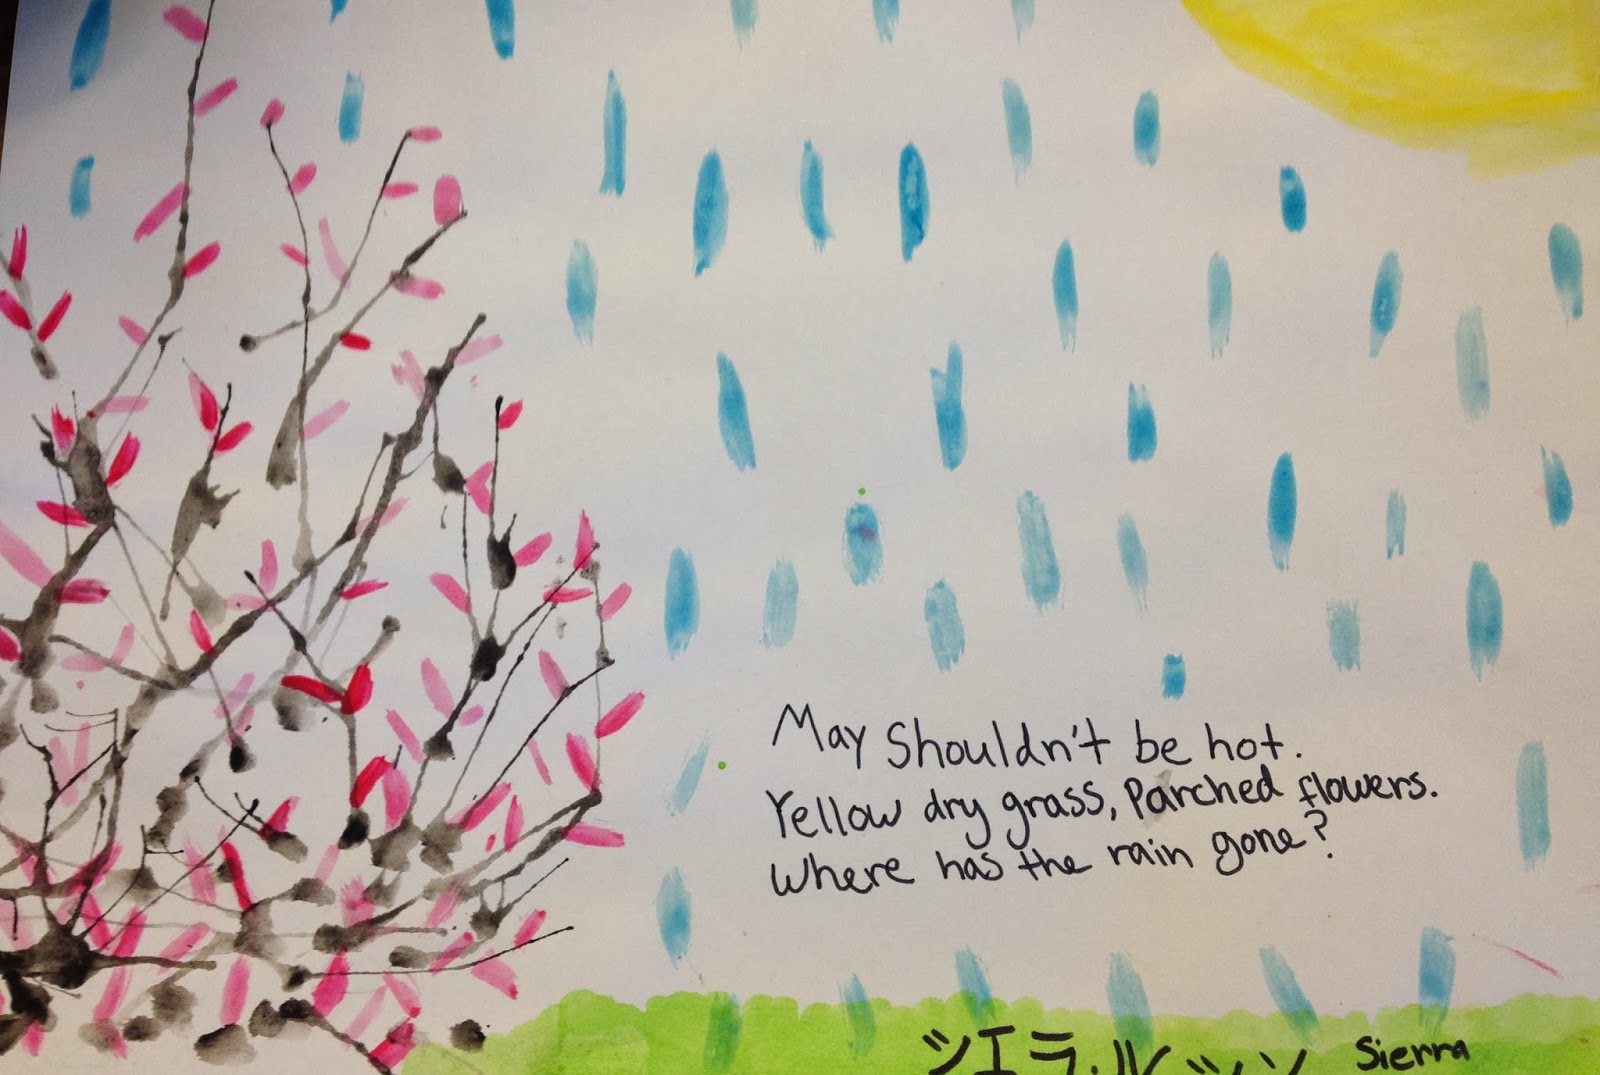 May Shouldn't be hot.
Yellow dry grass, Parched flowers.
Where has the rain gone?
シエラ Sierra